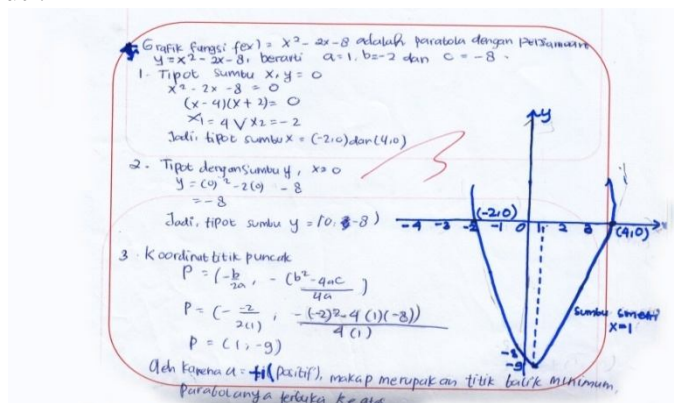 Grafik fungsi f(x) = x² - 2x - 8 adalah parabola dengan persamaan
y = x² - 2x - 8, berarti a = 1, b = -2 dan c = -8.
1. Tipot sumbu x, y = 0
x² - 2x - 8 = 0
(x - 4)(x + 2) = 0
x₁ = 4 V x₂ = -2
Jadi, tipot sumbu x = (-2,0) dan (4,0)
2. Tipot dengan sumbu y, x = 0
y = (0)² - 2(0) - 8
= -8
Jadi, tipot sumbu y = (0, -8)
3. Koordinat titik puncak
P = (-b/2a, -(b² - 4ac)/4a)
P = (- -2/2(1), -(-2)² - 4(1)(-8))/4(1)
P = (1, -9)
Oleh karena a = +1 (positif), maka p merupakan titik balik minimum,
Parabolanya terbuka keatas
y
(-2,0)
-4 -3 -2 -1 0 1 2 3 x
(4,0)
sumbu simetri
x=1
-8
-9